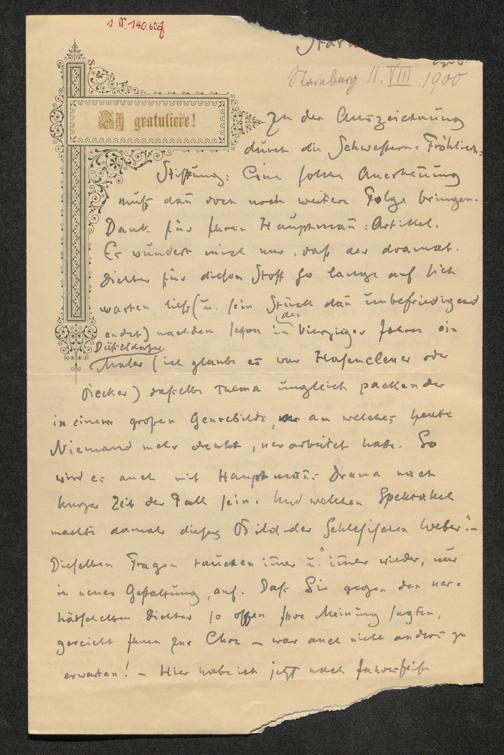 Starnberg 11. VIII. 1900
Ich gratuliere!
Zu der Auszeichnung
durch die Schwestern-Fröhlich-
Stiftung: Eine solche Anerkennung
muß dan doch noch weitere Folge bringen.
Dank für Ihren Hauptman̄-Artikel.
Es wundert mich nur, daß der dramat.
Dichter für diesen Stoff so lange auf sich
warten ließ (u. sein Stück dan̄ unbefriedigend
endet) nachdem schon in den vierziger Jahren ein
Düsseldorfer
Maler (ich glaube es war Hasenclever oder
Becker) dasselbe Thema ungleich packender
in einem großen Genrebilde, an welches heute
Niemand mehr denkt, verarbeitet hatte. So
wird es auch mit Hauptman̄s Drama nach
kurzer Zeit der Fall sein. Und welchen Spektakel
machte damals dieses Bild der "Schlesischen Weber"! –
Dieselben Fragen tauchen im̄er u. im̄er wieder, nur
in neuer Gestaltung, auf. Daß Sie gegen den ver-
hätschelten Dichter so offen Ihre Meinung sagten,
gereicht Ihnen zur Ehre – war auch nicht anders zu
erwarten! – Hier habe ich jetzt nach Jahresfrist